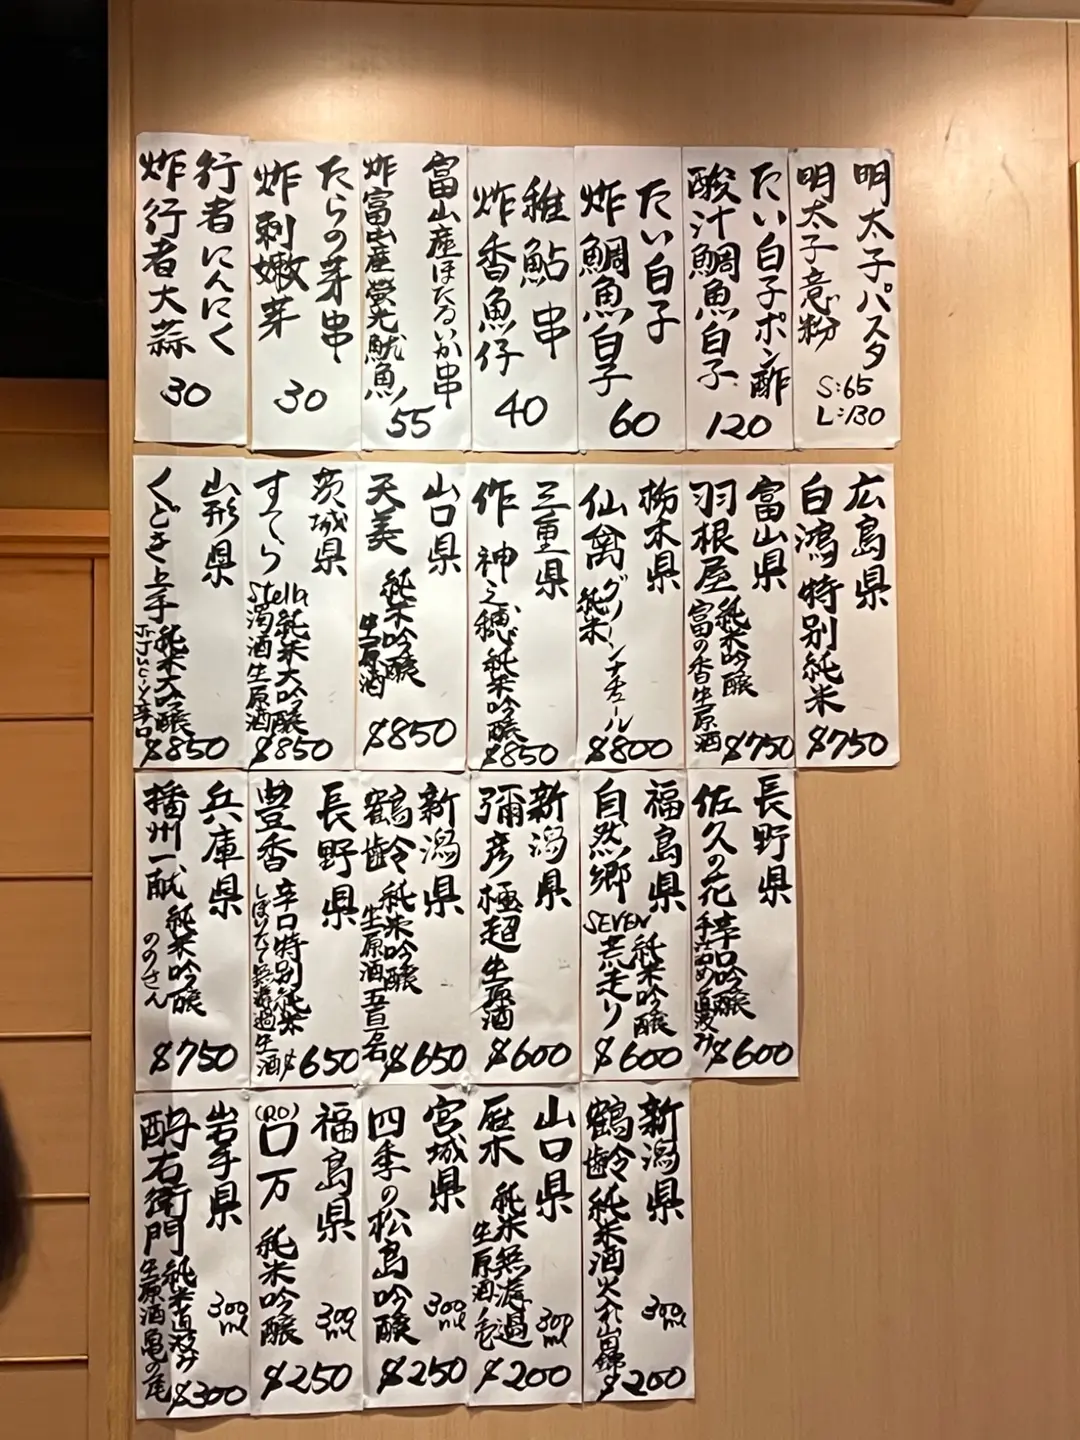 明太子パスタ
明太子意粉
S:65
L:130
たい白子ポン酢
酸汁鯛魚白子
120
たい白子
炸鯛魚白子
60
稚鮎串
炸香魚仔
40
富山産ほたるいか串
炸富山産螢光魷魚
55
たらの芽串
炸刺嫩芽
30
行者にんにく
炸行者大蒜
30
広島県
白鴻特別純米
$750
富山県
羽根屋純米吟醸
富の香生原酒
$750
栃木県
仙禽グリーンナチュール
純米
$800
三重県
作 神之穂純米吟醸
$850
山口県
天美純米吟醸
生原酒
$850
茨城県
すてら
Stella純米大吟醸
濁酒生原酒
$850
山形県
くどき上手純米大吟醸
Jr.
辛口
$850
長野県
佐久の花辛口吟醸
直汲み
$600
福島県
自然郷
SEVEN純米吟醸
荒走り
$600
新潟県
彌彦極超生原酒
$600
新潟県
鶴齢純米吟醸
生原酒五百
$650
長野県
豊香 辛口特別純米
しぼりたて無濾過生酒
$650
兵庫県
播州一献純米吟醸
ののさん
$750
新潟県
300ml
鶴齢純米酒火入れ山田錦
$200
山口県
300ml
雁木純米無濾過
生原酒
$200
宮城県
300ml
四季の松島吟醸
$250
福島県
300ml
(RO)
ロ万 純米吟醸
$250
岩手県
300ml
酉与右衛門純米直汲み
生原酒亀の尾
$300